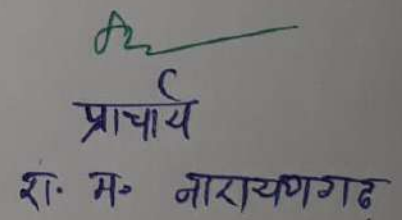 प्राचार्य
रा. म. नारायणगढ